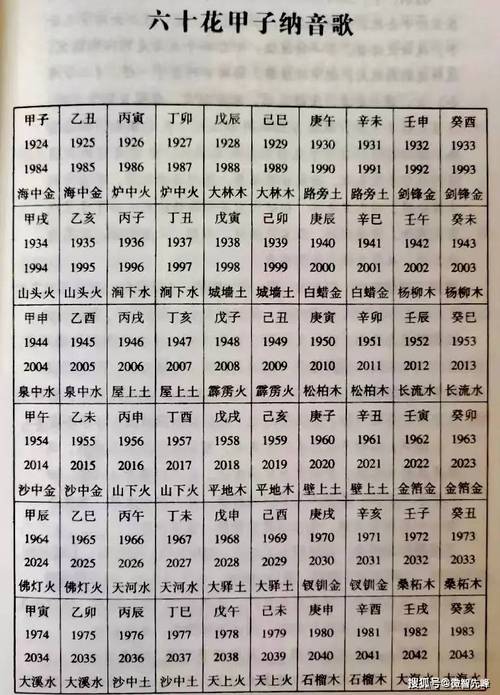 六十花甲子纳音歌
甲子 乙丑 丙寅 丁卯 戊辰 己巳 庚午 辛未 壬申 癸酉
1924 1925 1926 1927 1928 1929 1930 1931 1932 1933
1984 1985 1986 1987 1988 1989 1990 1991 1992 1993
海中金 海中金 炉中火 炉中火 大林木 大林木 路旁土 路旁土 剑锋金 剑锋金
甲戌 乙亥 丙子 丁丑 戊寅 己卯 庚辰 辛巳 壬午 癸未
1934 1935 1936 1937 1938 1939 1940 1941 1942 1943
1994 1995 1996 1997 1998 1999 2000 2001 2002 2003
山头火 山头火 涧下水 涧下水 城墙土 城墙土 白蜡金 白蜡金 杨柳木 杨柳木
甲申 乙酉 丙戌 丁亥 戊子 己丑 庚寅 辛卯 壬辰 癸巳
1944 1945 1946 1947 1948 1949 1950 1951 1952 1953
2004 2005 2006 2007 2008 2009 2010 2011 2012 2013
泉中水 泉中水 屋上土 屋上土 霹雳火 霹雳火 松柏木 松柏木 长流水 长流水
甲午 乙未 丙申 丁酉 戊戌 己亥 庚子 辛丑 壬寅 癸卯
1954 1955 1956 1957 1958 1959 1960 1961 1962 1963
2014 2015 2016 2017 2018 2019 2020 2021 2022 2023
沙中金 沙中金 山下火 山下火 平地木 平地木 壁上土 壁上土 金箔金 金箔金
甲辰 乙巳 丙午 丁未 戊申 己酉 庚戌 辛亥 壬子 癸丑
1964 1965 1966 1967 1968 1969 1970 1971 1972 1973
2024 2025 2026 2027 2028 2029 2030 2031 2032 2033
佛灯火 佛灯火 天河水 天河水 大驿土 大驿土 钗钏金 钗钏金 桑柘木 桑柘木
甲寅 乙卯 丙辰 丁巳 戊午 己未 庚申 辛酉 壬戌 癸亥
1974 1975 1976 1977 1978 1979 1980 1981 1982 1983
2034 2035 2036 2037 2038 2039 2040 2041 2042 2043
大溪水 大溪水 沙中土 沙中土 天上火 天上火 石榴木 石榴木 大海水
搜狐号@微智先峰